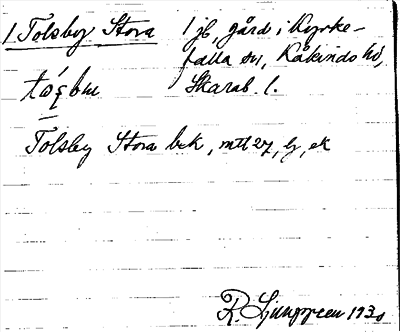 1 Tolsby, Stora 1 jb, gård i Kyrke-
falla sn, Kåkinds hd,
Skarab. l.
Tolsby Stora bek, mtl 27, lj, ek
R. Ljunggren 1930